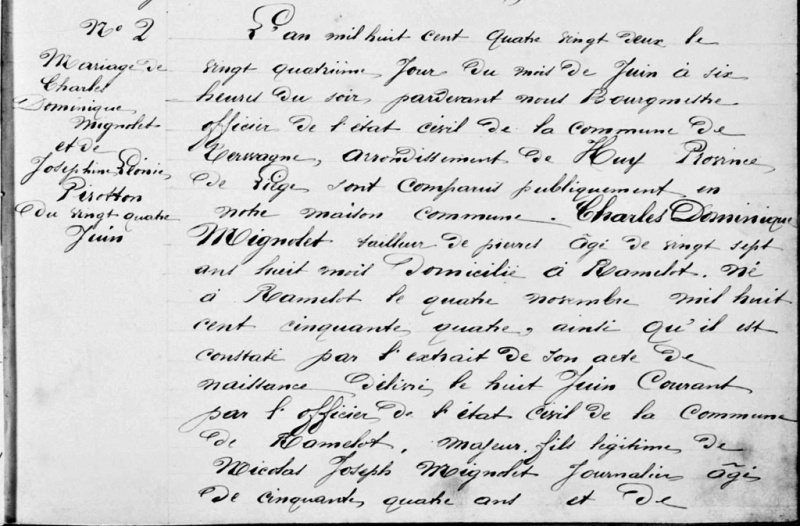 N° 2
Mariage de
Charles
Dominique
Mignolet
et de
Joséphine Léonie
Pirotton
du vingt quatre
Juin
L'an mil huit cent quatre vingt deux le
vingt quatrième Jour du mois de Juin à six
heures du soir, pardevant nous Bourgmestre
officier de l'état civil de la commune de
Terwagne, arrondissement de Huy Province
de Liége sont comparus publiquement en
notre maison commune. Charles Dominique
Mignolet tailleur de pierres âgé de vingt sept
ans huit mois Domicilié à Ramelot. Né
à Ramelot le quatre novembre mil huit
cent cinquante quatre, ainsi qu'il est
constaté par l'extrait de son acte de
naissance délivré le huit Juin Courant
par l'officier de l'état civil de la Commune
de Ramelot, majeur, fils légitime de
Nicolas Joseph Mignolet Journalier âgé
de cinquante quatre ans et de